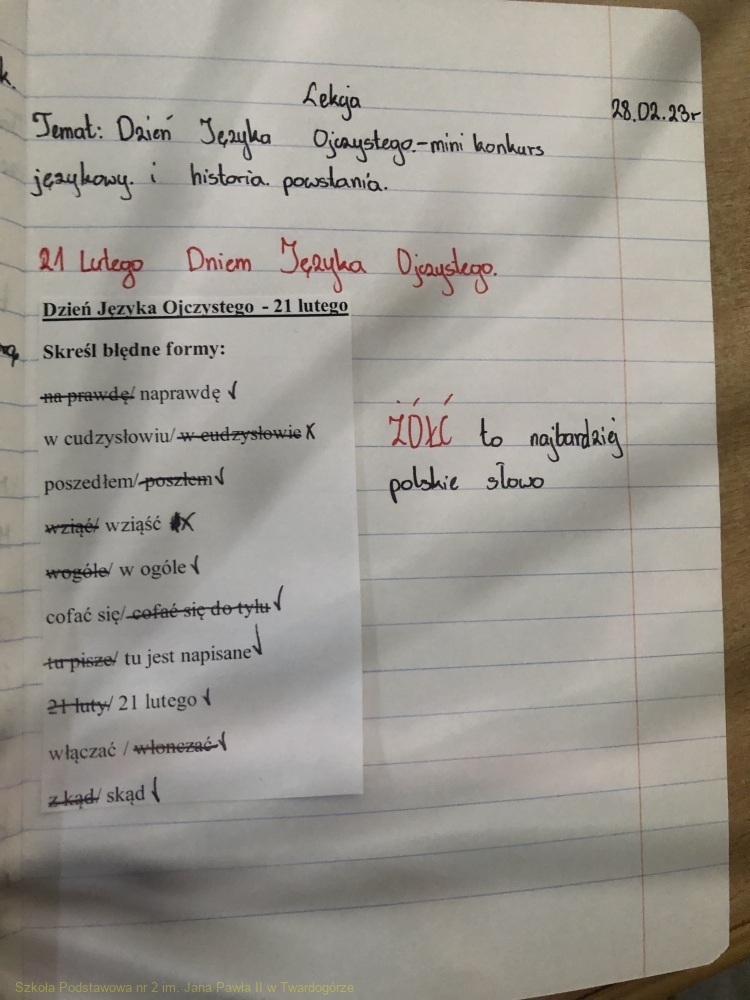 k.
Lekcja
28.02.23r
Temat: Dzień Języka Ojczystego.-mini konkurs
językowy. i historia. powstania.
21 Lutego Dniem Języka Ojczystego.
Dzień Języka Ojczystego - 21 lutego
Skreśl błędne formy:
na prawdę/ naprawdę ✓
w cudzysłowiu/ w cudzysłowie X
poszedłem/ poszłem ✓
wziąć/ wziąść X
wogóle/ w ogóle ✓
cofać się/ cofać się do tyłu ✓
tu pisze/ tu jest napisane ✓
21 luty/ 21 lutego ✓
włączać / włonczać ✓
z kąd/ skąd ✓
ŻÓŁĆ to najbardziej
polskie słowo
Szkoła Podstawowa nr 2 im. Jana Pawła II w Twardogórze